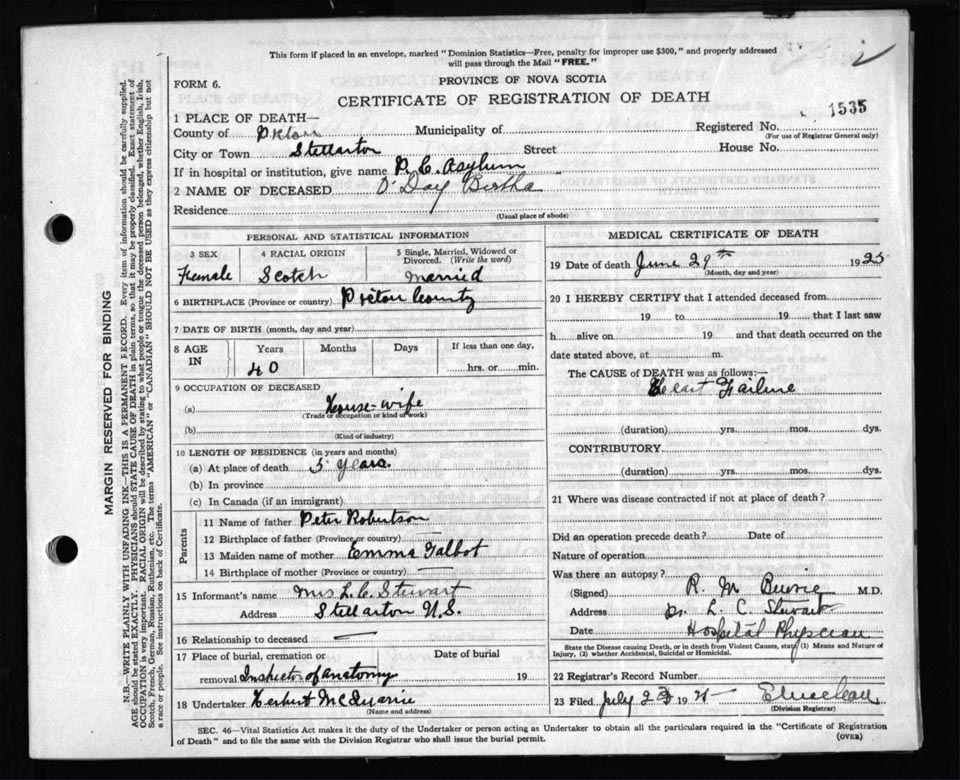 This form if placed in an envelope, marked "Dominion Statistics—Free, penalty for improper use $300," and properly addressed
will pass through the Mail "FREE."
FORM 6.
PROVINCE OF NOVA SCOTIA
CERTIFICATE OF REGISTRATION OF DEATH
1535
1 PLACE OF DEATH—
County of Pictou Municipality of Registered No.
(For use of Registrar General only)
City or Town Stellarton Street House No.
If in hospital or institution, give name P. C. Asylum
2 NAME OF DECEASED O'Day Bertha
Residence
(Usual place of abode)
PERSONAL AND STATISTICAL INFORMATION
3 SEX 4 RACIAL ORIGIN 5 Single, Married, Widowed or Divorced. (Write the word)
Female Scotch Married
6 BIRTHPLACE (Province or country) Pictou County
7 DATE OF BIRTH (month, day and year)
8 AGE IN Years Months Days If less than one day,
40 hrs. or min.
9 OCCUPATION OF DECEASED
(a) House-wife
(Trade or occupation or kind of work)
(b)
(Kind of industry)
10 LENGTH OF RESIDENCE (in years and months)
(a) At place of death 5 years.
(b) In province
(c) In Canada (if an immigrant)
Parents
11 Name of father Peter Robertson
12 Birthplace of father (Province or country) —
13 Maiden name of mother Emma Talbot
14 Birthplace of mother (Province or country) —
15 Informant's name Mrs L. C. Stewart
Address Stellarton N.S.
16 Relationship to deceased —
17 Place of burial, cremation or Date of burial
removal Inspector of anatomy 19
18 Undertaker Herbert McQuarrie
(Name and address)
MEDICAL CERTIFICATE OF DEATH
19 Date of death June 29th 1925
(Month, day and year)
20 I HEREBY CERTIFY that I attended deceased from
19 to 19 that I last saw
h alive on 19 and that death occurred on the
date stated above, at m.
The CAUSE of DEATH was as follows:—
Heart Failure
(duration) yrs. mos. dys.
CONTRIBUTORY
(duration) yrs. mos. dys.
21 Where was disease contracted if not at place of death?
Did an operation precede death? Date of
Nature of operation
Was there an autopsy?
(Signed) R. M. M.D.
Address Dr. L. C. Stewart
Date Hospital Physician
State the Disease causing Death, or in death from Violent Causes, state (1) Means and Nature of
Injury, (2) whether Accidental, Suicidal or Homicidal.
22 Registrar's Record Number
23 Filed July 2 19 25
(Division Registrar)
SEC. 46—Vital Statistics Act makes it the duty of the Undertaker or person acting as Undertaker to obtain all the particulars required in the "Certificate of Registration
of Death" and to file the same with the Division Registrar who shall issue the burial permit. (OVER)
MARGIN RESERVED FOR BINDING
N.B.—WRITE PLAINLY WITH UNFADING INK—THIS IS A PERMANENT RECORD. Every item of information should be carefully supplied.
AGE should be stated EXACTLY. PHYSICIANS should STATE CAUSE OF DEATH in plain terms, so that it may be properly classified. Exact statement of
OCCUPATION is very important. RACIAL ORIGIN will be described by stating to what people or tongue the deceased person belonged, whether English, Irish,
Scotch, French, German, Russian, Ruthenian, etc. The terms "AMERICAN" or "CANADIAN" SHOULD NOT BE USED as they express citizenship but not
a race or people. See instructions on back of Certificate.